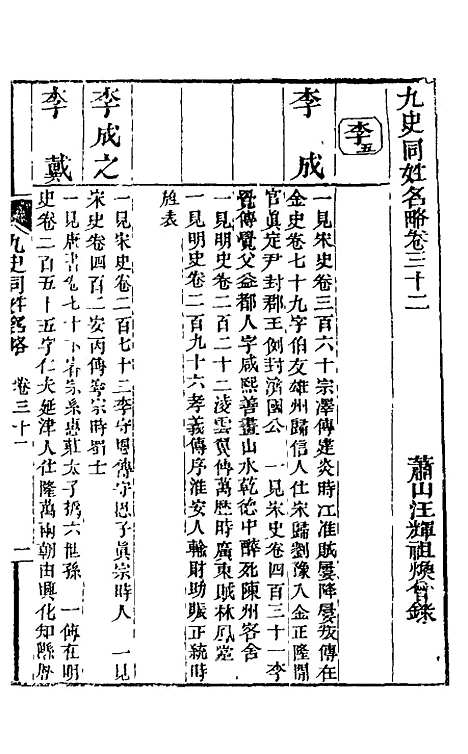 九史同姓名略卷三十二
蕭山汪輝祖煥曾錄
李五
李成
一見宋史卷三百六十宗澤傳建炎時江淮賊屢降屢叛傳在
金史卷七十九字伯友雄州歸信人仕宋歸劉豫入金正隆間
官眞定尹封郡王例封濟國公 一見宋史卷四百三十一李
覺傳覺父益都人字咸熙善畫山水乾德中醉死陳州客舍
一見明史卷二百二十二凌雲翼傳萬歷時廣東賊林鳳黨
一見明史卷二百九十六孝義傳序淮安人輸財助賑正統時
旌表
李成之
一見宋史卷二百七十二李守恩傳守恩子眞宗時人 一見
宋史卷四百二安丙傳寧宗時蜀士
李戴
一見唐書卷七十下宗室系惠莊太子撝六世孫 一傳在明
史卷二百五十五字仁夫延津人仕隆萬兩朝由興化知縣歷
九史同姓名略 卷三十二 一